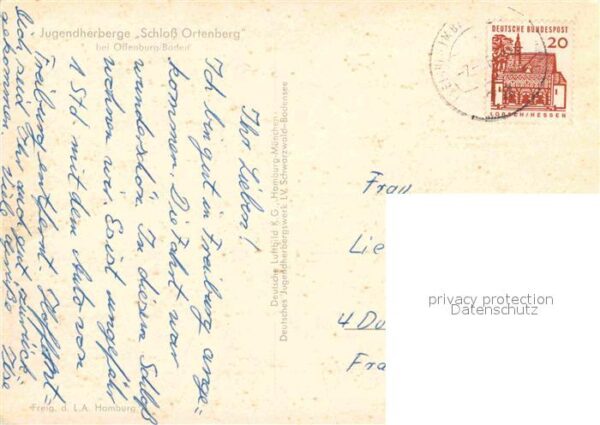 Jugendherberge „Schloß Ortenberg"
bei Offenburg/Baden
Ihr Lieben!
Ich bin gut in Freiburg ange=
kommen. Die Fahrt war
wunderschön. In diesem Schloß
wohnen wir. Es ist ungefähr
1 Std mit dem Auto von
Freiburg entfernt. Hoffent=
lich seid Ihr auch gut zurück=
gekommen. Viele Grüße Ilse
Freig. d. L.A. Hamburg
Deutsche Luftbild K.G., Hamburg-München
Deutsches Jugendherbergswerk LV. Schwarzwald-Bodensee
DEUTSCHE BUNDESPOST
20
LORSCH/HESSEN
Frau
Lie
4 Du
Fra
privacy protection
Datenschutz